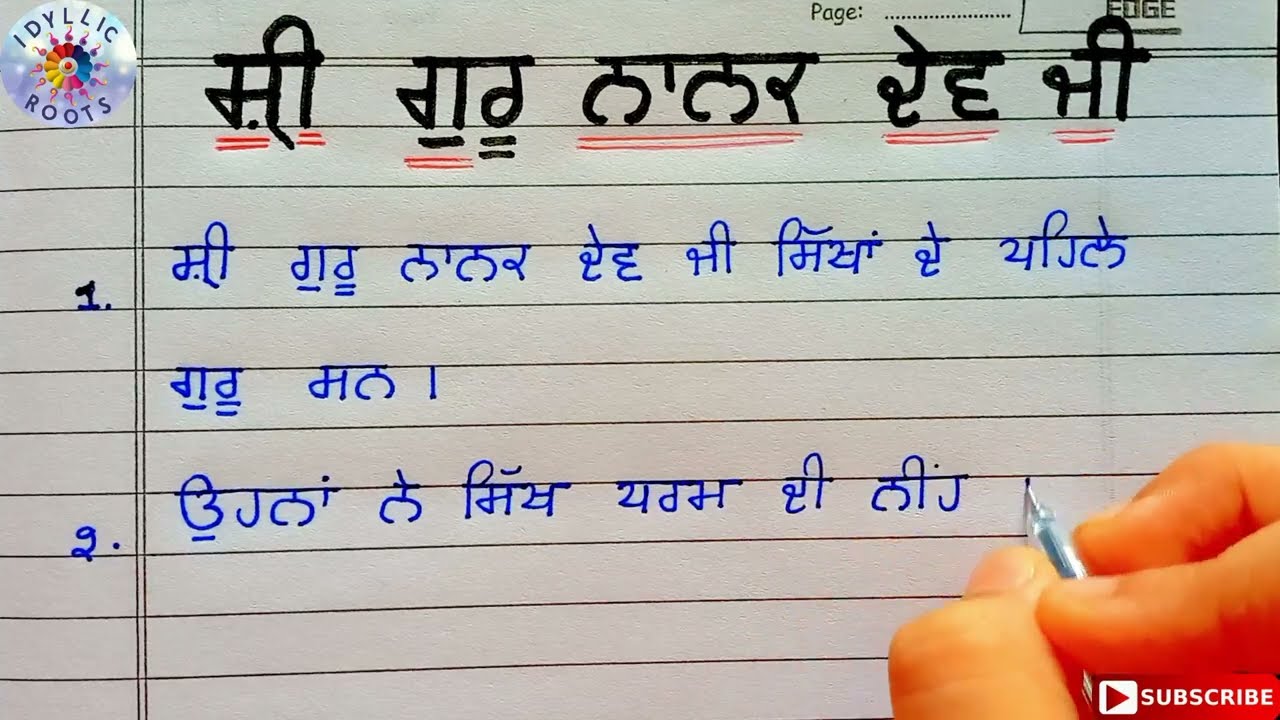 IDYLLIC ROOTS
Page: ....................
EDGE
ਸ਼੍ਰੀ ਗੁਰੂ ਨਾਨਕ ਦੇਵ ਜੀ
1. ਸ਼੍ਰੀ ਗੁਰੂ ਨਾਨਕ ਦੇਵ ਜੀ ਸਿੱਖਾਂ ਦੇ ਪਹਿਲੇ
ਗੁਰੂ ਸਨ।
੨. ਉਹਨਾਂ ਨੇ ਸਿੱਖ ਧਰਮ ਦੀ ਨੀਂਹ
SUBSCRIBE